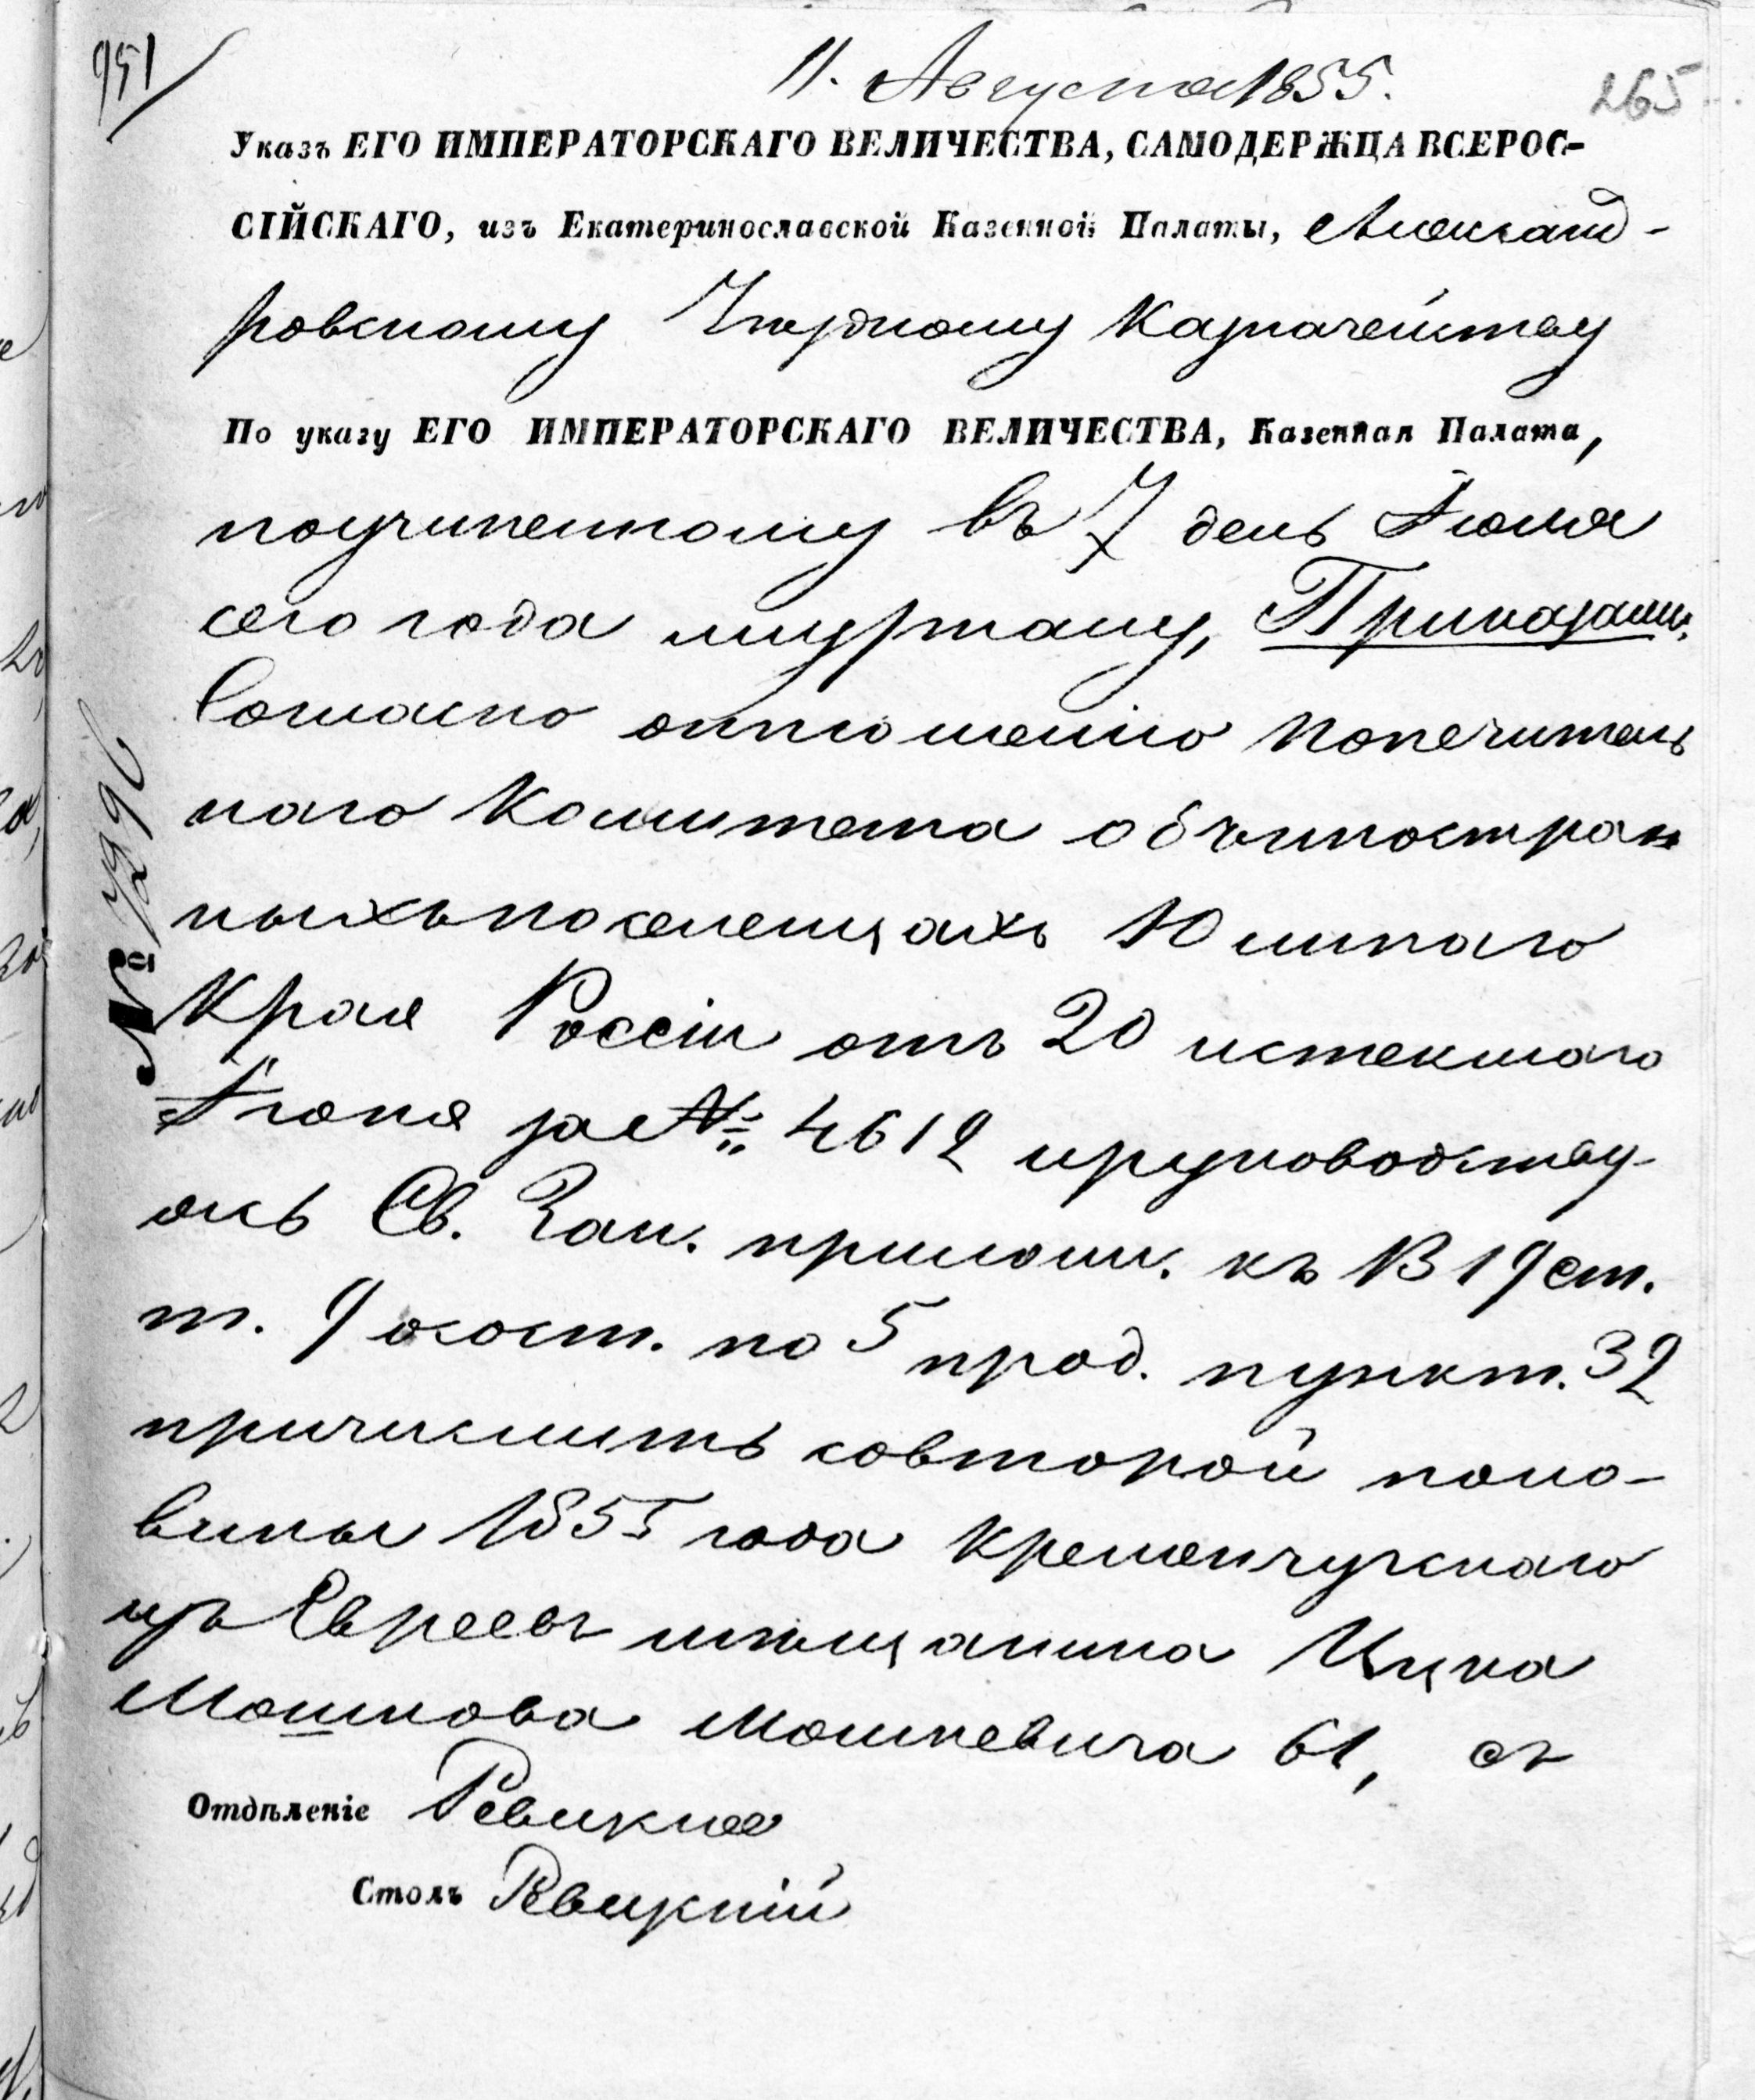 951
11. Августа 1855.
265
Указъ ЕГО ИМПЕРАТОРСКАГО ВЕЛИЧЕСТВА, САМОДЕРЖЦА ВСЕРОС-
СІЙСКАГО, изъ Екатеринославской Казенной Палаты, Александ-
ровскому Уѣздному Казначейству
По указу ЕГО ИМПЕРАТОРСКАГО ВЕЛИЧЕСТВА, Казенная Палата,
поучиненному въ 7 день Іюля
сего года журналу, Приказали:
Согласно отношенію Попечитель
наго Комитета объиностран
ныхъпоселенцахъ Южнаго
Края Россіи отъ 20 истекшаго
Іюня за № 4612 ируководству-
ясь Св. Зак. прилож. къ 1319 ст.
т. 9 о сост. по 5 прод. пункт. 32
причислить совторой поло-
вины 1855 года Кременчугскаго
изъ Евреевъ мѣщанина Ицка
Мошкова Мошкевича 61, съ
Отдѣленіе Ревизкое
Столъ Ревизкій
№ 7296